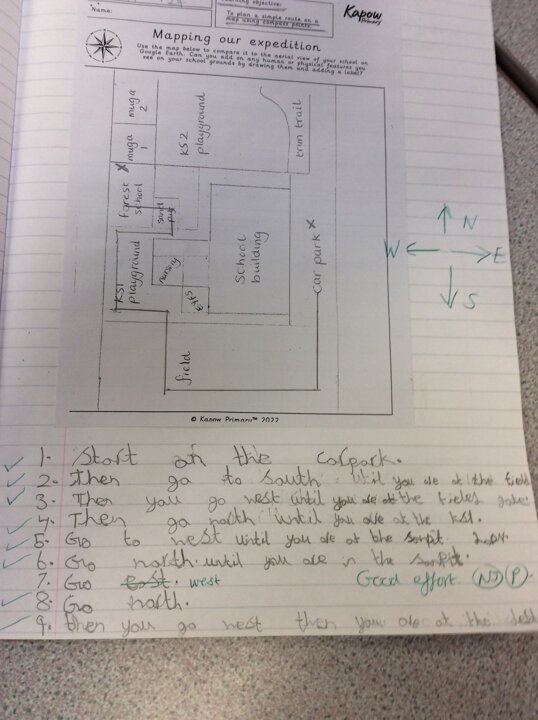 Name:
Learning objective:
To plan a simple route on a
map using compass points
Kapow
Primary
Mapping our expedition
Use the map below to compare it to the aerial view of your school on
Google Earth. Can you add on any human or physical features you
see on your school grounds by drawing them and adding a label?
muga
2
muga
1
KS2
playground
trim trail
forest
school
sand
pit
KS1
playground
nursery
EYFS
School
building
car park
field
N
W
E
S
© Kapow Primary™ 2022
1. Start on the carpark.
2. Then go to south until you are at the field
3. Then you go west until you are at the fields
4. Then go north until you are at the KS1.
5. Go to west until you are at the
6. Go north until you are in the
7. Go east. west
Good effort
8. Go north.
9. then you go west then you are at the